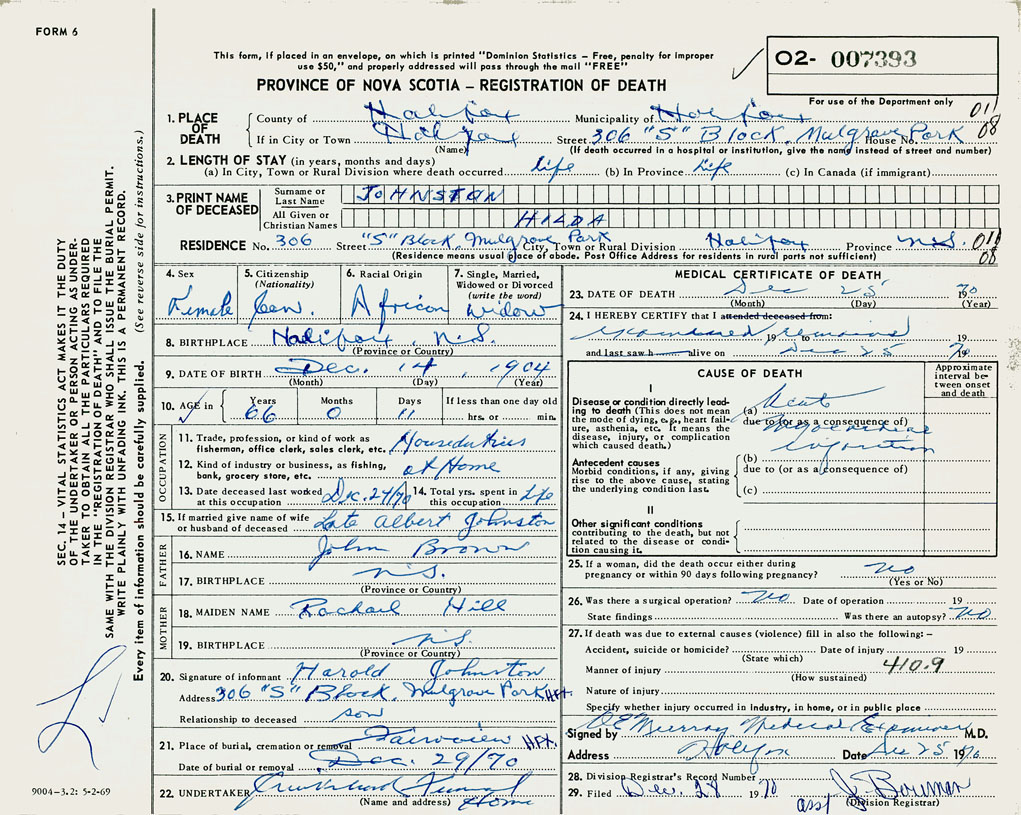 FORM 6
This form, if placed in an envelope, on which is printed "Dominion Statistics - Free, penalty for improper
use $50," and properly addressed will pass through the mail "FREE"
PROVINCE OF NOVA SCOTIA - REGISTRATION OF DEATH
O2- 007393
For use of the Department only
011
08
1. PLACE OF DEATH
County of Halifax Municipality of Halifax
If in City or Town Halifax Street 306 "S" Block, Mulgrave Park House No.
(Name) (If death occurred in a hospital or institution, give the name instead of street and number)
2. LENGTH OF STAY (in years, months and days)
(a) In City, Town or Rural Division where death occurred life (b) In Province Life (c) In Canada (if immigrant)
3. PRINT NAME OF DECEASED
Surname or Last Name JOHNSTON
All Given or Christian Names HILDA
RESIDENCE No. 306 Street "S" Block, Mulgrave Park City, Town or Rural Division Halifax Province N.S. 011
08
(Residence means usual place of abode. Post Office Address for residents in rural parts not sufficient)
4. Sex Female
5. Citizenship (Nationality) Can.
6. Racial Origin African
7. Single, Married, Widowed or Divorced (write the word) Widow
8. BIRTHPLACE Halifax, N.S.
(Province or Country)
9. DATE OF BIRTH Dec. 14, 1904
(Month) (Day) (Year)
10. AGE in Years 66 Months 0 Days 11 If less than one day old hrs. or min.
OCCUPATION
11. Trade, profession, or kind of work as fisherman, office clerk, sales clerk, etc. Houseduties
12. Kind of industry or business, as fishing, bank, grocery store, etc. at Home
13. Date deceased last worked at this occupation Dec. 24/70 14. Total yrs. spent in this occupation Life
15. If married give name of wife or husband of deceased Late Albert Johnston
FATHER
16. NAME John Brown
17. BIRTHPLACE N.S.
(Province or Country)
MOTHER
18. MAIDEN NAME Rachael Hill
19. BIRTHPLACE N.S.
(Province or Country)
20. Signature of informant Harold Johnston
Address 306 "S" Block, Mulgrave Park Hfx.
Relationship to deceased son
21. Place of burial, cremation or removal Fairview Hfx.
Date of burial or removal Dec. 29/70
22. UNDERTAKER Funeral
(Name and address) Home
MEDICAL CERTIFICATE OF DEATH
23. DATE OF DEATH Dec 25 1970
(Month) (Day) (Year)
24. I HEREBY CERTIFY that I attended deceased from:
examined remains 19 19
and last saw h alive on Dec 25 1970
CAUSE OF DEATH
Approximate interval between onset and death
I
Disease or condition directly leading to death (This does not mean the mode of dying, e.g., heart failure, asthenia, etc. It means the disease, injury, or complication which caused death.)
(a) Acute
due to (or as a consequence of)
Myocardial
infarction
Antecedent causes
Morbid conditions, if any, giving rise to the above cause, stating the underlying condition last.
(b)
due to (or as a consequence of)
(c)
II
Other significant conditions contributing to the death, but not related to the disease or condition causing it.
25. If a woman, did the death occur either during pregnancy or within 90 days following pregnancy? No
(Yes or No)
26. Was there a surgical operation? No Date of operation 19
State findings Was there an autopsy? No
27. If death was due to external causes (violence) fill in also the following: -
Accident, suicide or homicide? Date of injury 19
(State which)
Manner of injury 410.9
(How sustained)
Nature of injury
Specify whether injury occurred in industry, in home, or in public place
Signed by Murray Medical Examiner M.D.
Address Halifax Date Dec 25 1970
28. Division Registrar's Record Number
29. Filed Dec. 28 1970 asst J. Bowman
(Division Registrar)
SEC. 14 - VITAL STATISTICS ACT MAKES IT THE DUTY
OF THE UNDERTAKER OR PERSON ACTING AS UNDER-
TAKER TO OBTAIN ALL THE PARTICULARS REQUIRED
IN THE "REGISTRATION OF DEATH" AND TO FILE THE
SAME WITH THE DIVISION REGISTRAR WHO SHALL ISSUE THE BURIAL PERMIT.
WRITE PLAINLY WITH UNFADING INK. THIS IS A PERMANENT RECORD.
Every item of information should be carefully supplied. (See reverse side for instructions.)
9004-3.2: 5-2-69